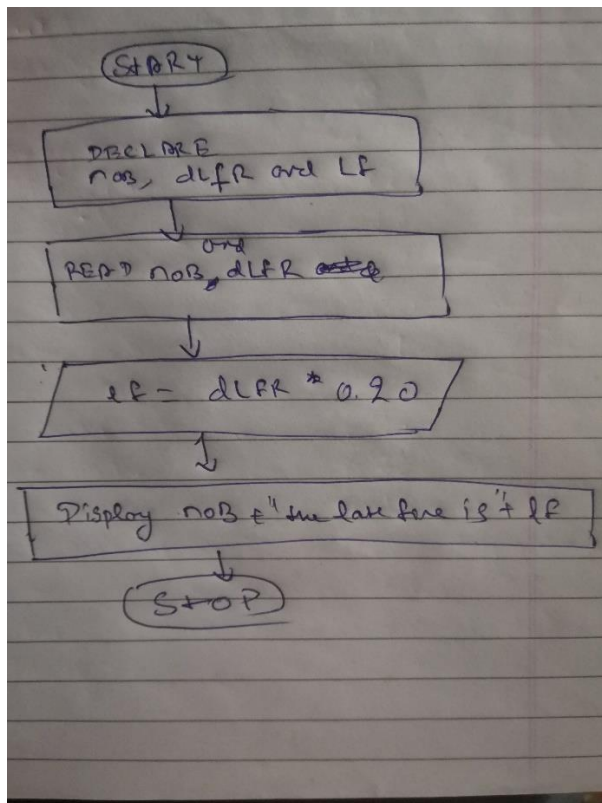 START
DECLARE
noB, dLfR and Lf
and
READ noB, dLFR
lf = dLFR * 0.20
Display noB + "the late fine is" + lf
STOP